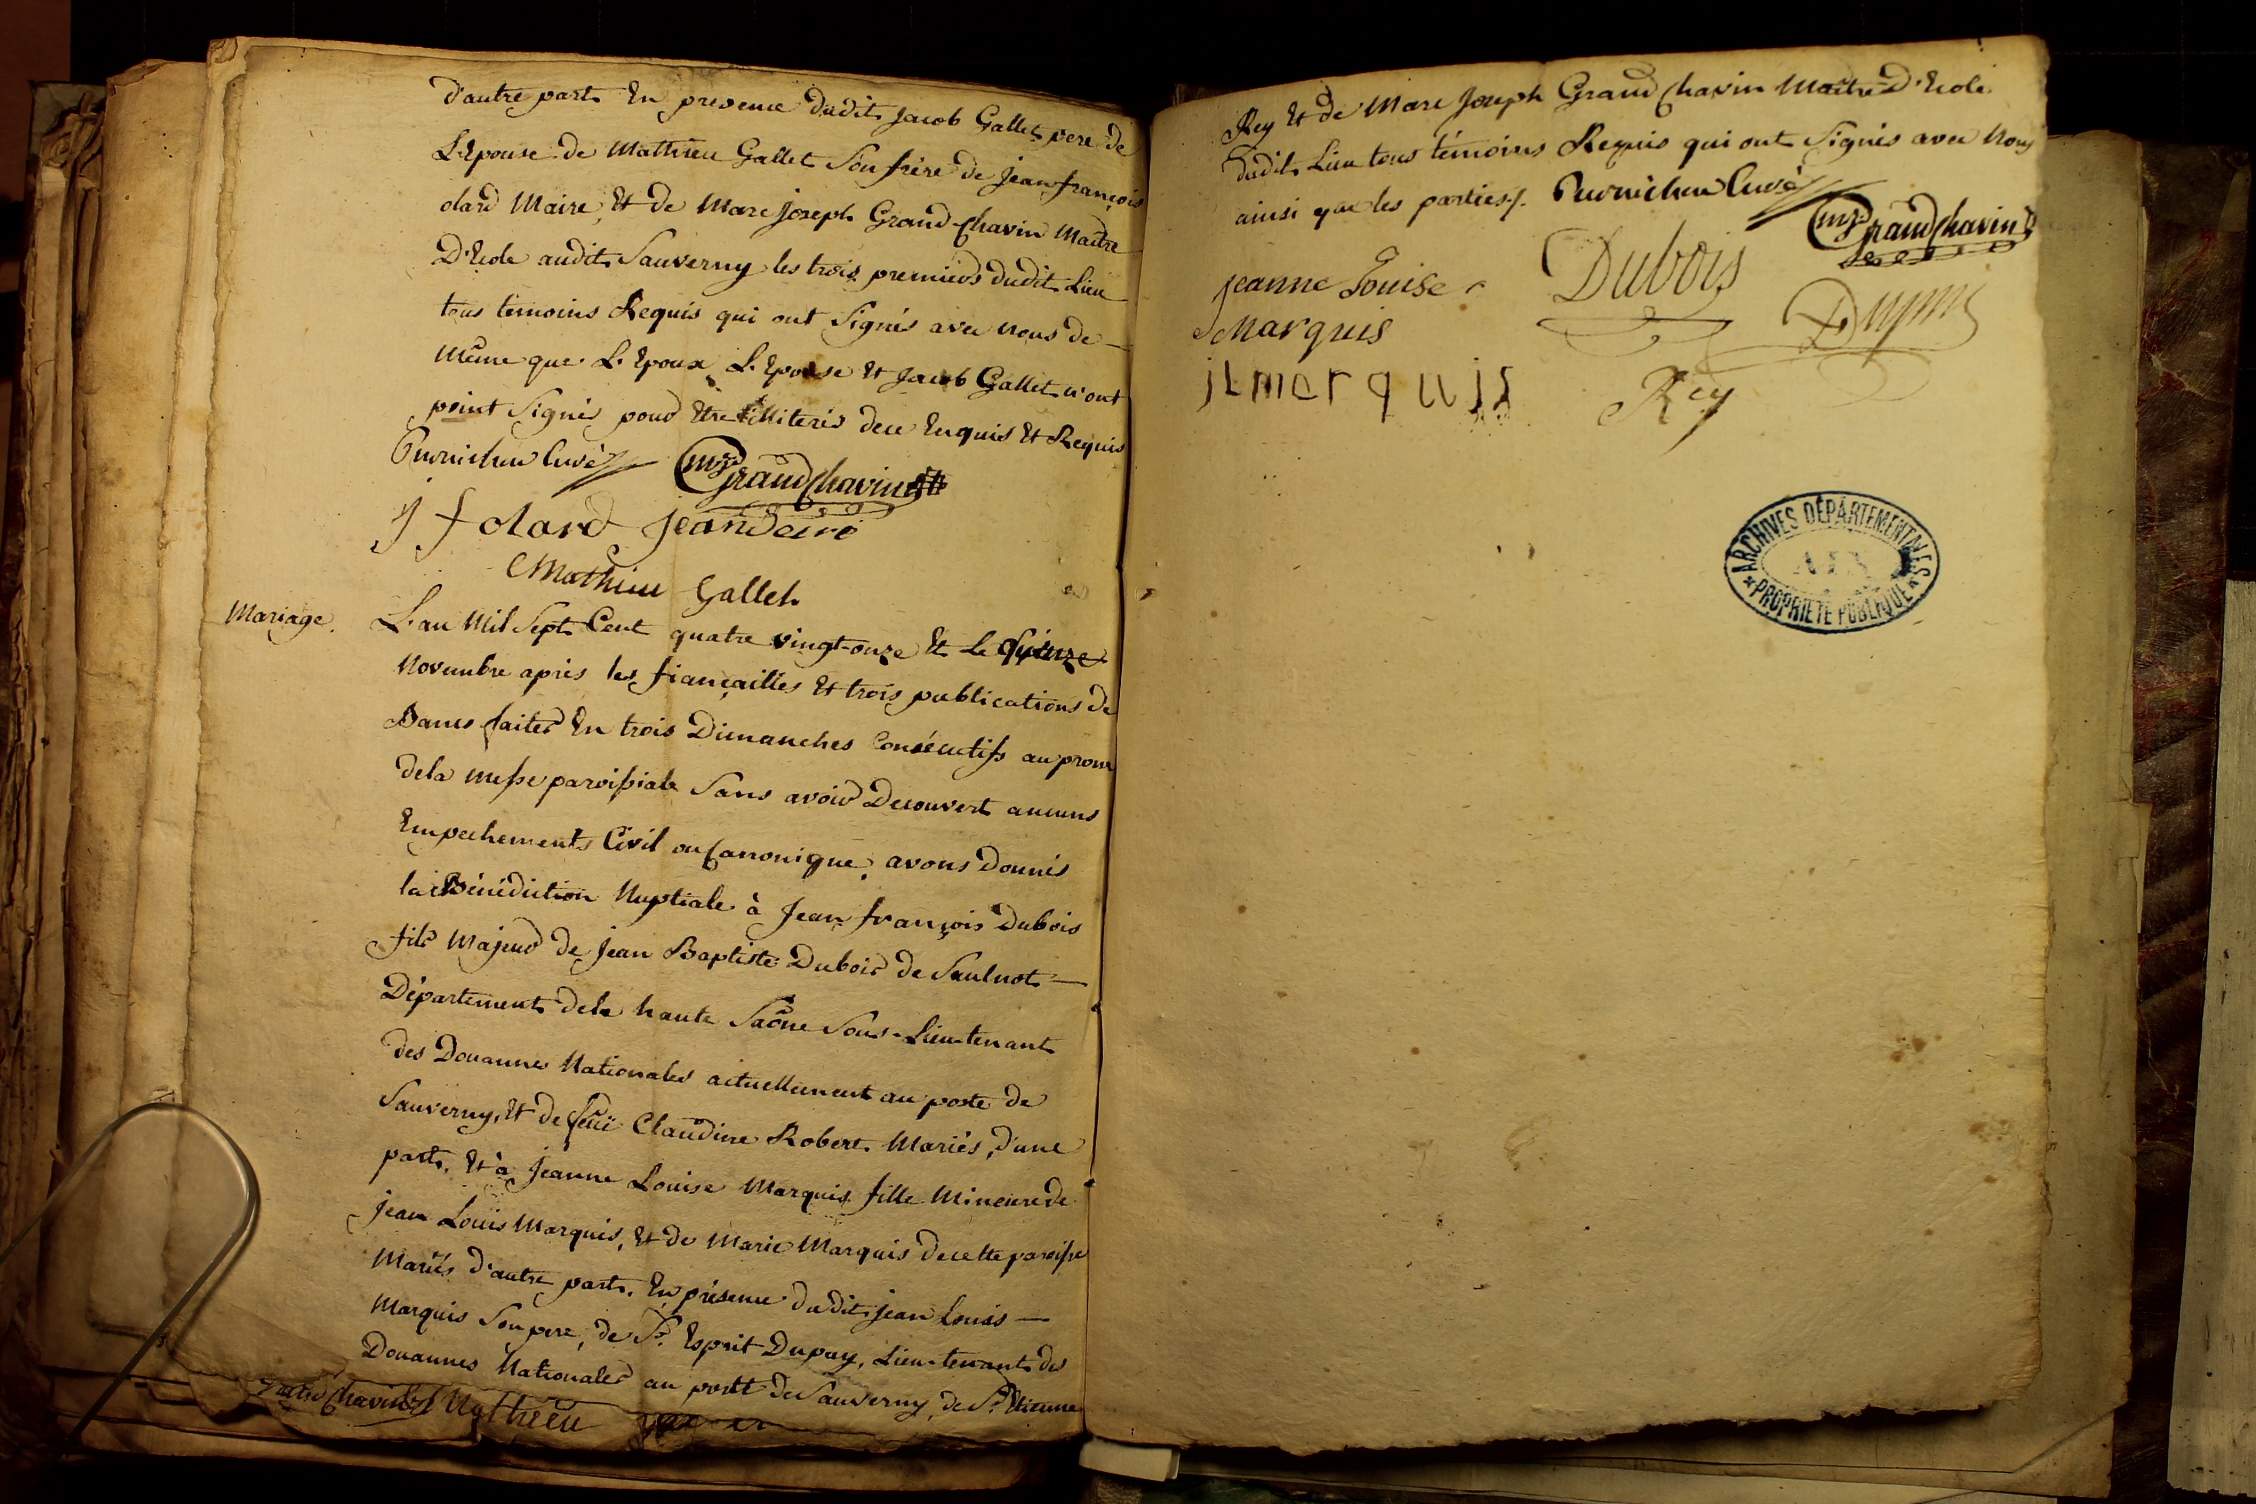 d'autre part En presence dudit Jacob Gallet pere de
L'Epouse de Mathieu Gallet Son frère de Jean françois
olard Maire, Et de Marc Joseph Grand-Chavin Maître
D'Ecole audit Sauverny les trois premiers dudit Lieu
tous temoins Requis qui ont Signés avec nous de
même que L'Epoux L'Epouse Et Jacob Gallet n'ont
point Signés pour Etre illiterés de ce Enquis Et Requis
Curé mj Grand Chavin
j f olard jean
Mathieu Gallet
Mariage.
L'an Mil Sept Cent quatre vingt-onze Et Le Quinze
Novembre après les fiançailles Et trois publications de
Bancs faites En trois Dimanches Consécutifs au prone
dela messe paroissiale Sans avoir Decouvert aucuns
Empechements Civil ou Canonique, avons Donnés
la Bénédiction Nuptiale à Jean françois Dubois
fils Majeur de Jean Baptiste Dubois de Saulnot
Département dela haute Saône Sous-Lieutenant
des Douannes Nationales actuellement au poste de
Sauverny, Et de feüe Claudine Robert Mariés, d'une
part, Et à Jeanne Louise Marquis fille Mineure de
Jean Louis Marquis, Et de Marie Marquis de cette paroisse
Mariés d'autre part. En présence dudit jean Louis
Marquis Son pere, de Sr. Esprit Dupuy, Lieutenant des
Douannes Nationales au postt de Sauverny, de Sr. Etienne
Chavin Mathieu
Rey Et de Marc Joseph Grand Chavin Maître D'Ecole
dudit Lieu tous témoins Requis qui ont Signés avec Nous
ainsi que les parties./. Curé
mj Grand Chavin
jeanne Louise Dubois
Marquis Dupuy
jlmarquis Rey
ARCHIVES DÉPARTEMENTALES
AIN
PROPRIÉTÉ PUBLIQUE